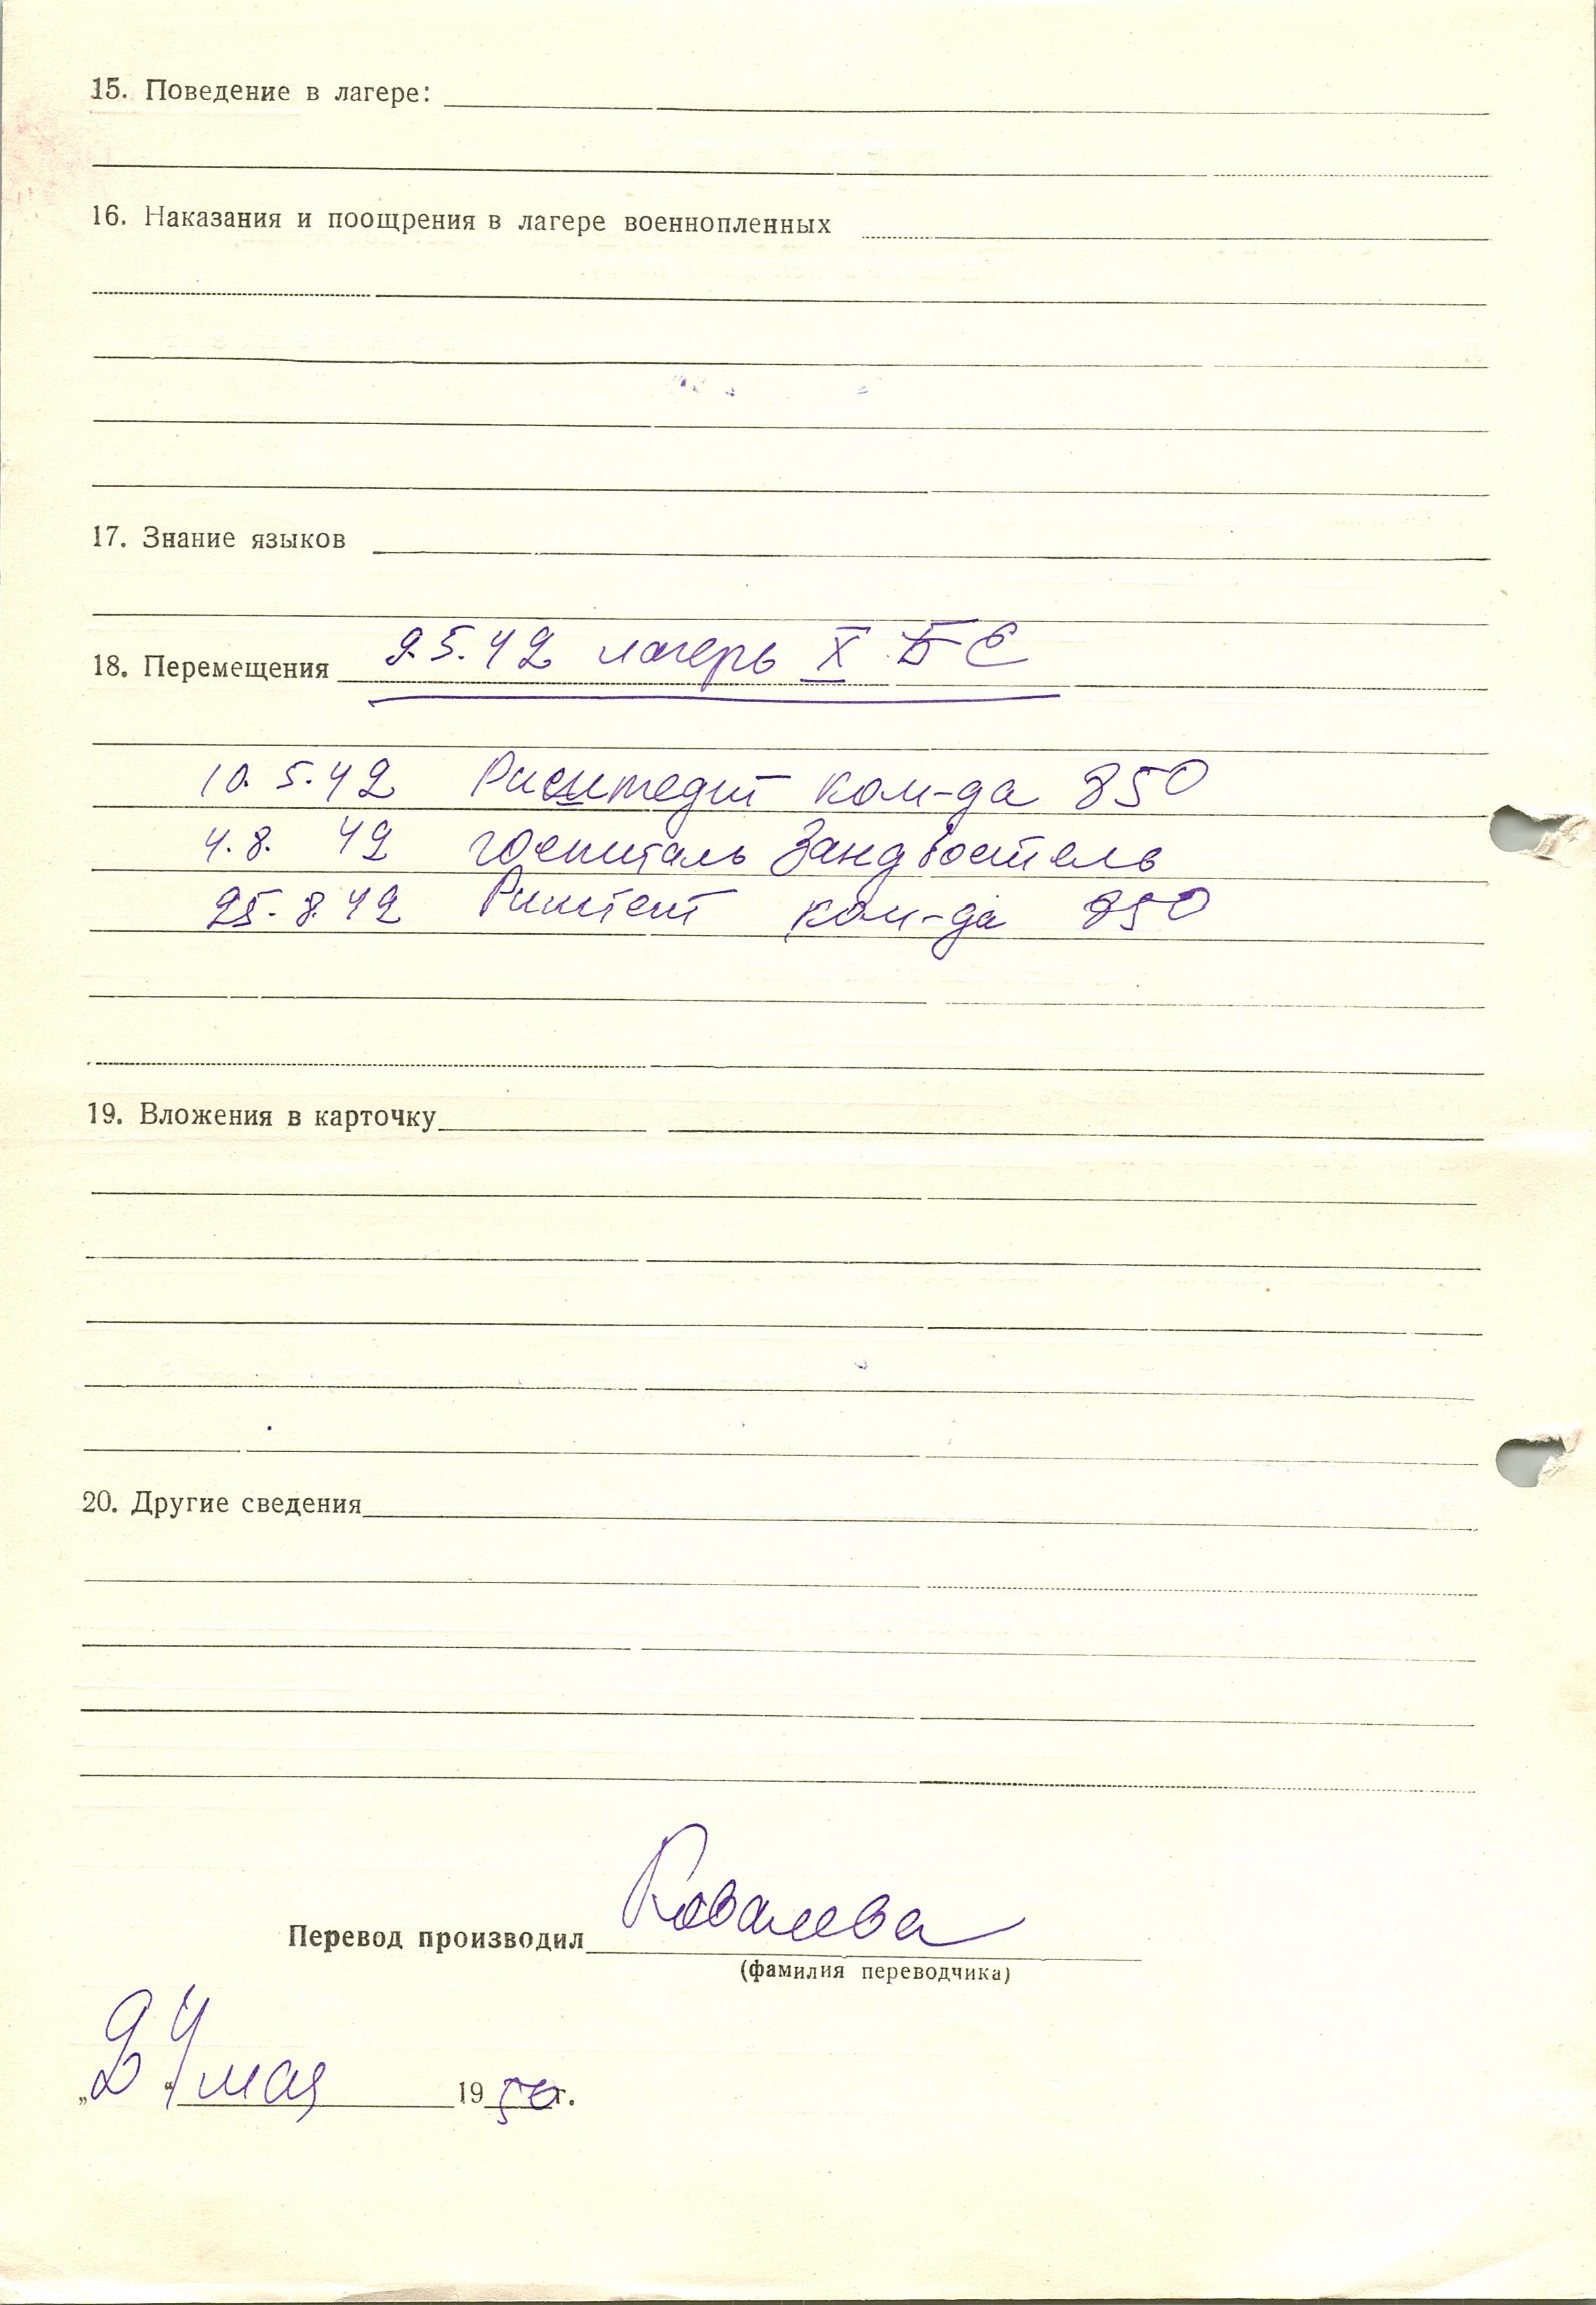 15. Поведение в лагере:
16. Наказания и поощрения в лагере военнопленных
17. Знание языков
18. Перемещения 9.5.42 лагерь X Б
10. 5. 42 ком-да 850
4. 8. 42 госпиталь Зандбостель
25. 8. 42 ком-да 850
19. Вложения в карточку
20. Другие сведения
Перевод производил Ковалева
(фамилия переводчика)
„24“ мая 1950г.